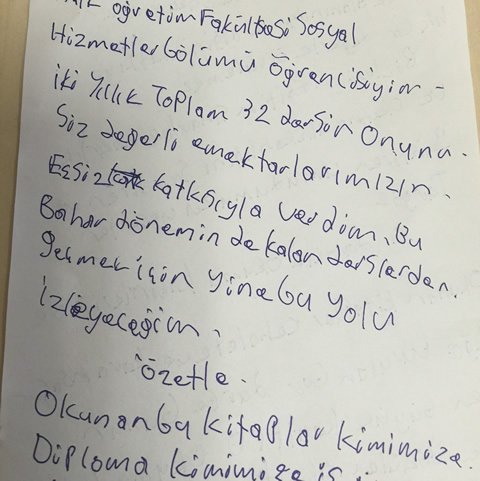 öğretim Fakültesi Sosyal
Hizmetler bölümü Öğrencisiyim -
iki yıllık Toplam 32 dersin Onunu.
Siz değerli emektarlarımızın.
Eşsiz katkısıyla verdim. Bu
Bahar dönemin de kalan derslerden.
geçmek için yine bu yolu
izleyeceğim.
Özetle.
Okunan bu kitaplar kimimize.
Diploma kimimize